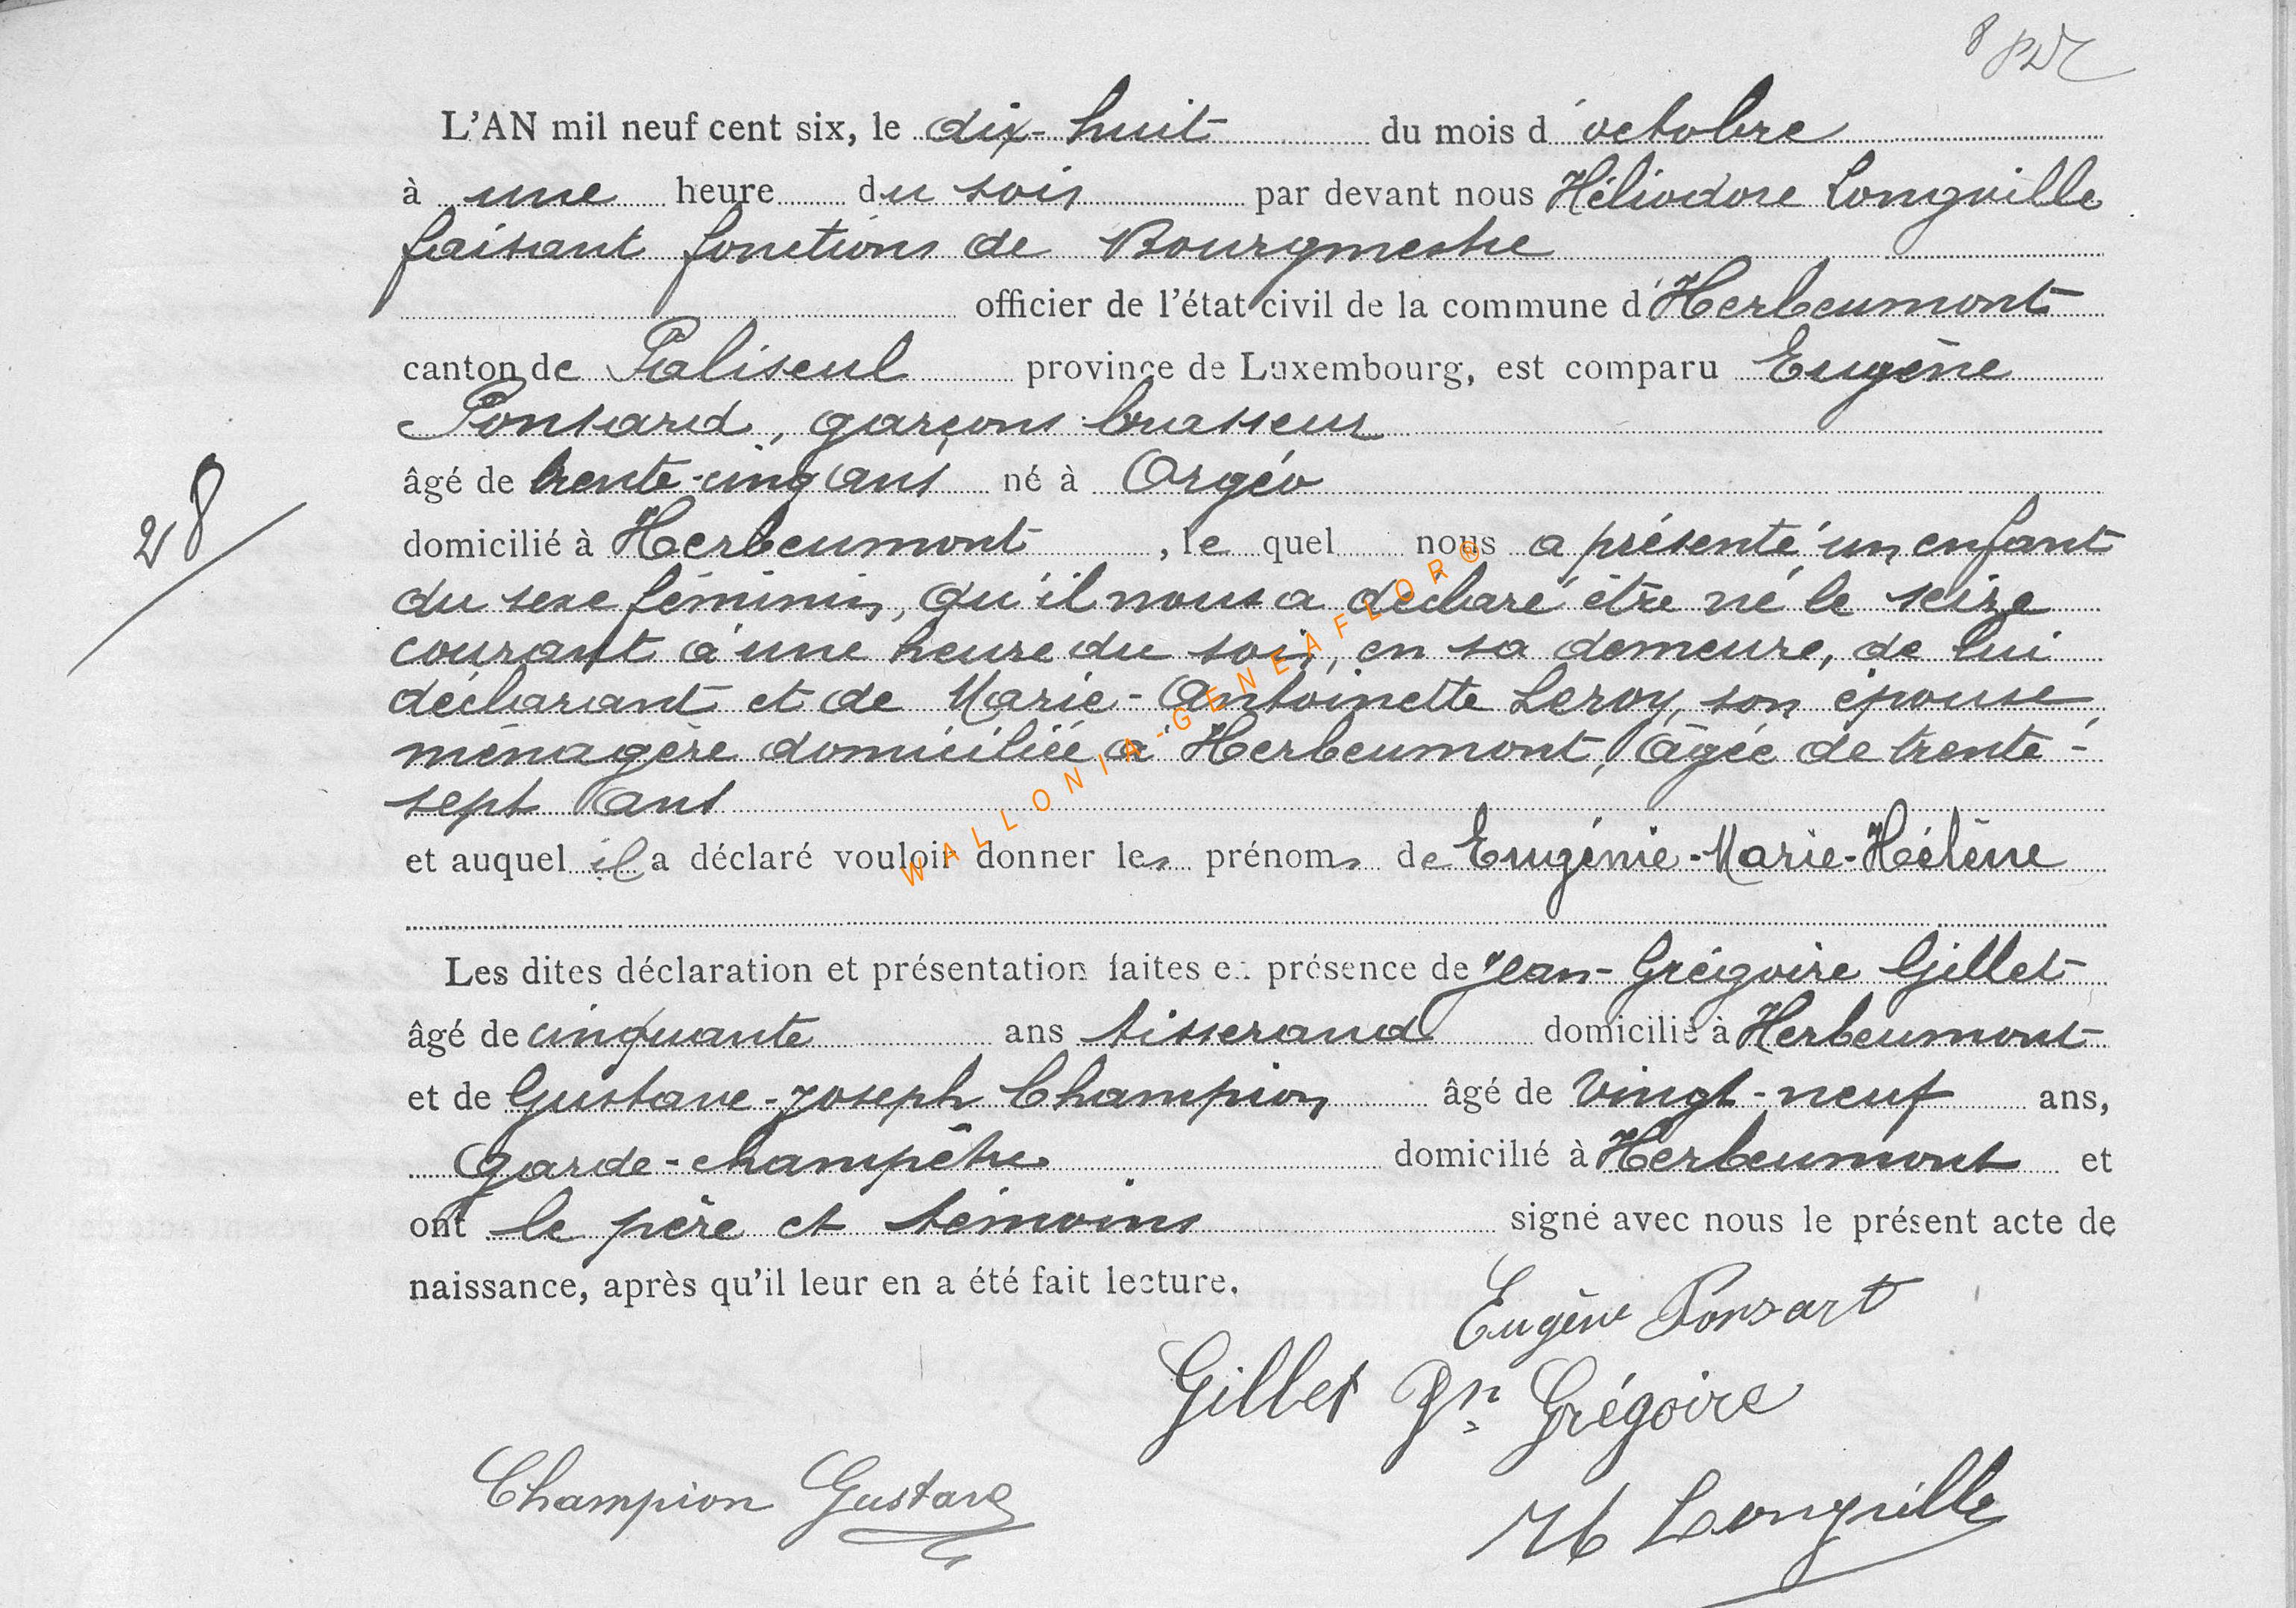 L'AN mil neuf cent six, le dix-huit du mois d'octobre
à une heure du soir par devant nous Héliodore Longville
faisant fonctions de Bourgmestre
officier de l'état civil de la commune d'Herbeumont
canton de Paliseul province de Luxembourg, est comparu Eugène
Ponsard, garçons brasseur
âgé de trente-cinq ans né à Orgéo
domicilié à Herbeumont, le quel nous a présenté un enfant
du sexe féminin, qu'il nous a déclaré être né le seize
courant à une heure du soir, en sa demeure, de lui
déclarant et de Marie-Antoinette Leroy, son épouse,
ménagère domiciliée à Herbeumont, âgée de trente-
sept ans
et auquel il a déclaré vouloir donner les prénoms de Eugénie-Marie-Hélène
Les dites déclaration et présentation faites en présence de Jean-Grégoire Gillet
âgé de cinquante ans tisserand domicilié à Herbeumont
et de Gustave-Joseph Champion âgé de vingt-neuf ans,
Garde-champêtre domicilié à Herbeumont et
ont le père et témoins signé avec nous le présent acte de
naissance, après qu'il leur en a été fait lecture.
Eugène Ponsart
Gillet Jn Grégoire
Champion Gustave
H Longville
28
WALLONIA-GENEAFLOR®